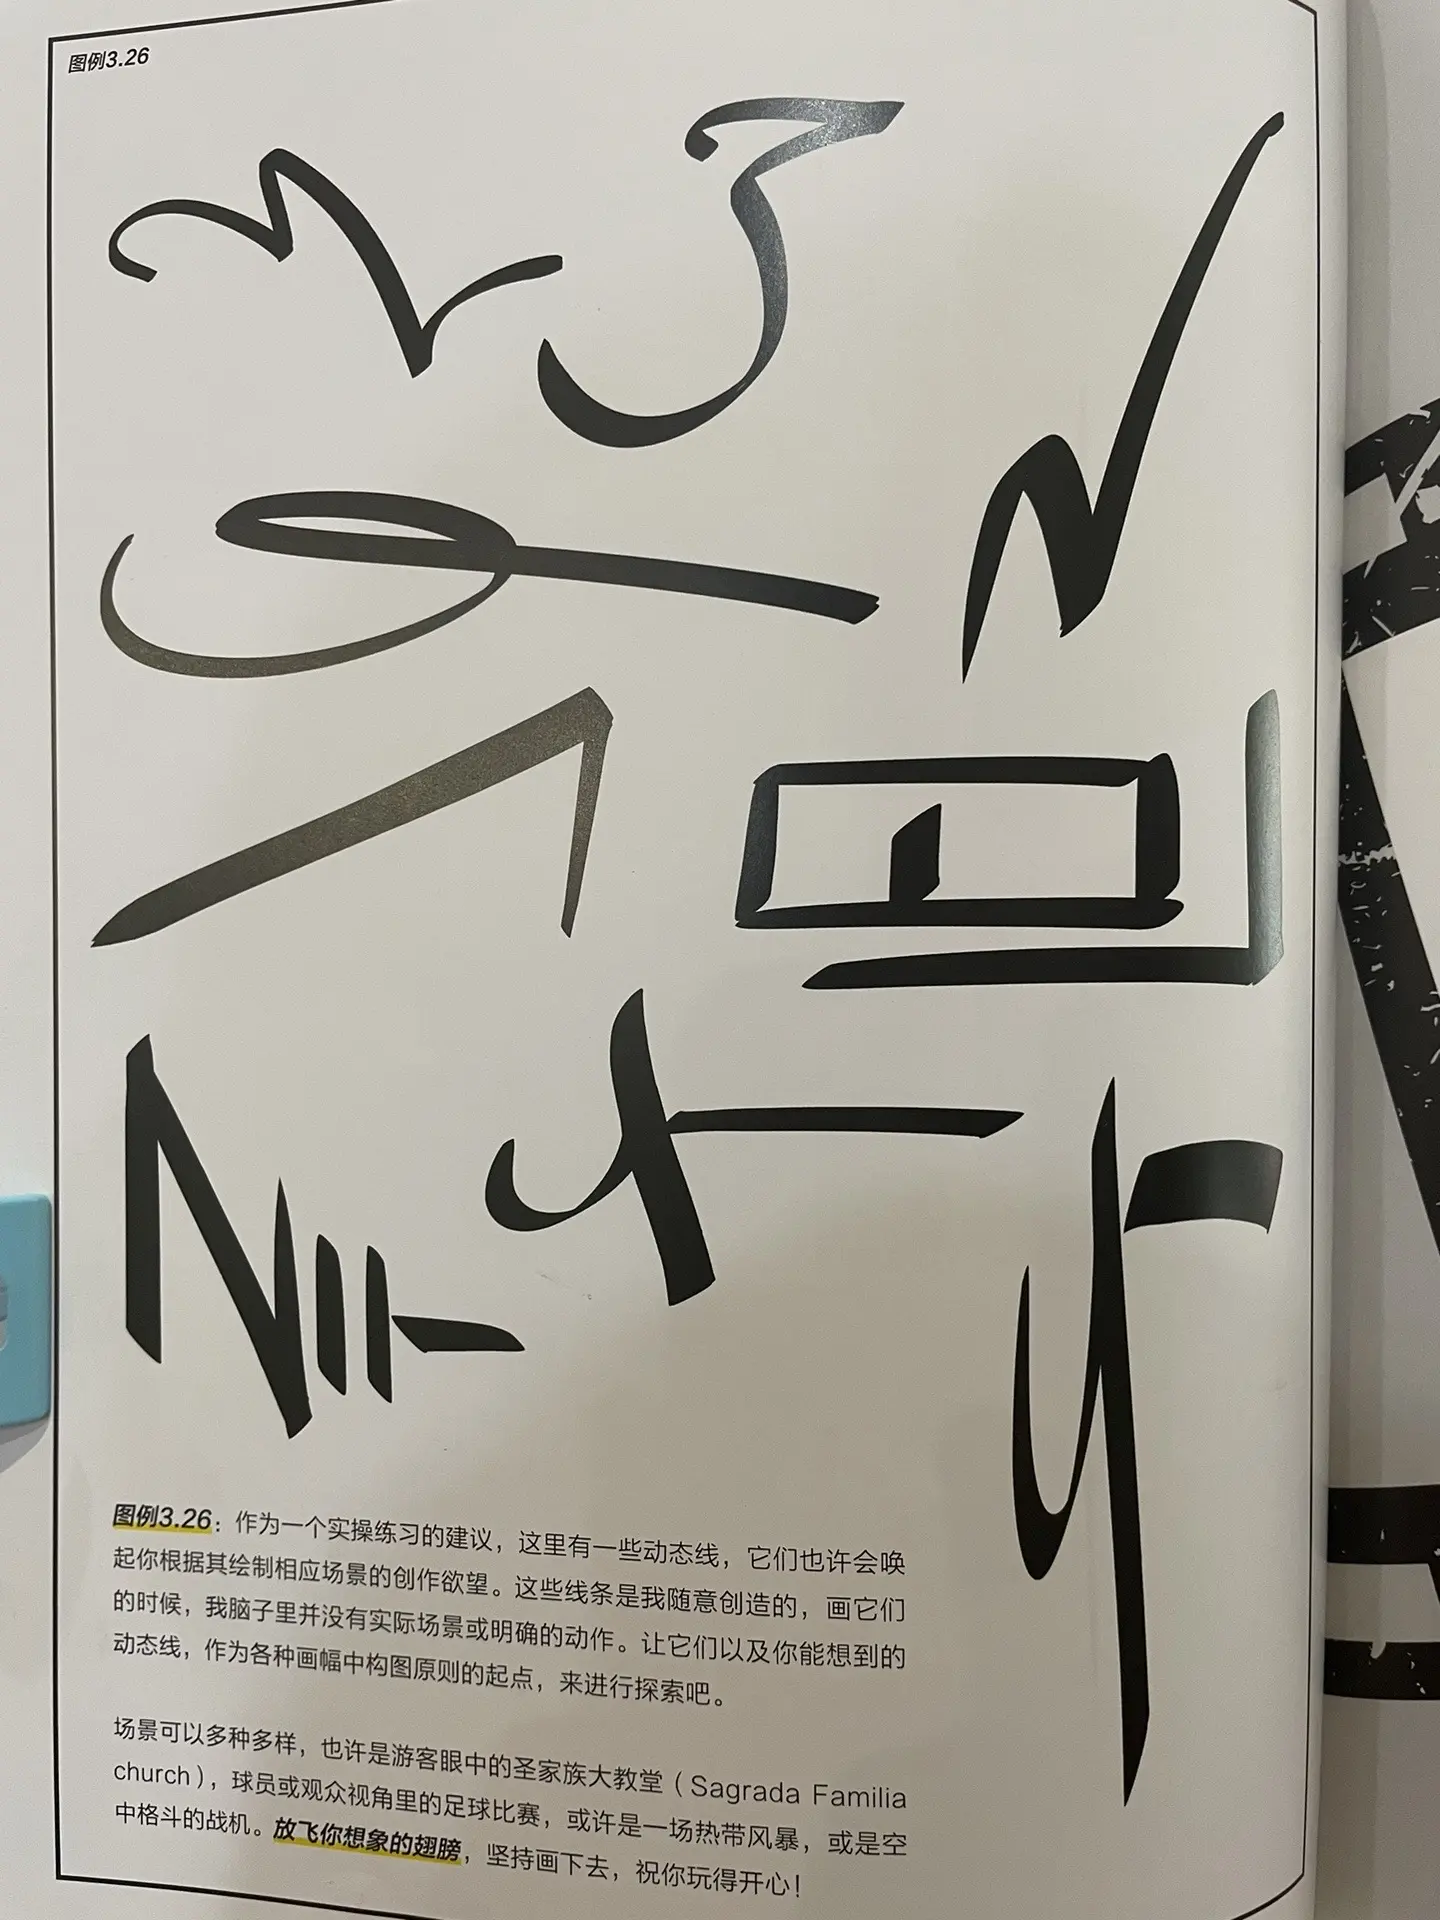 图例3.26
图例3.26：作为一个实操练习的建议，这里有一些动态线，它们也许会唤
起你根据其绘制相应场景的创作欲望。这些线条是我随意创造的，画它们
的时候，我脑子里并没有实际场景或明确的动作。让它们以及你能想到的
动态线，作为各种画幅中构图原则的起点，来进行探索吧。
场景可以多种多样，也许是游客眼中的圣家族大教堂（Sagrada Familia
church），球员或观众视角里的足球比赛，或许是一场热带风暴，或是空
中格斗的战机。放飞你想象的翅膀，坚持画下去，祝你玩得开心！